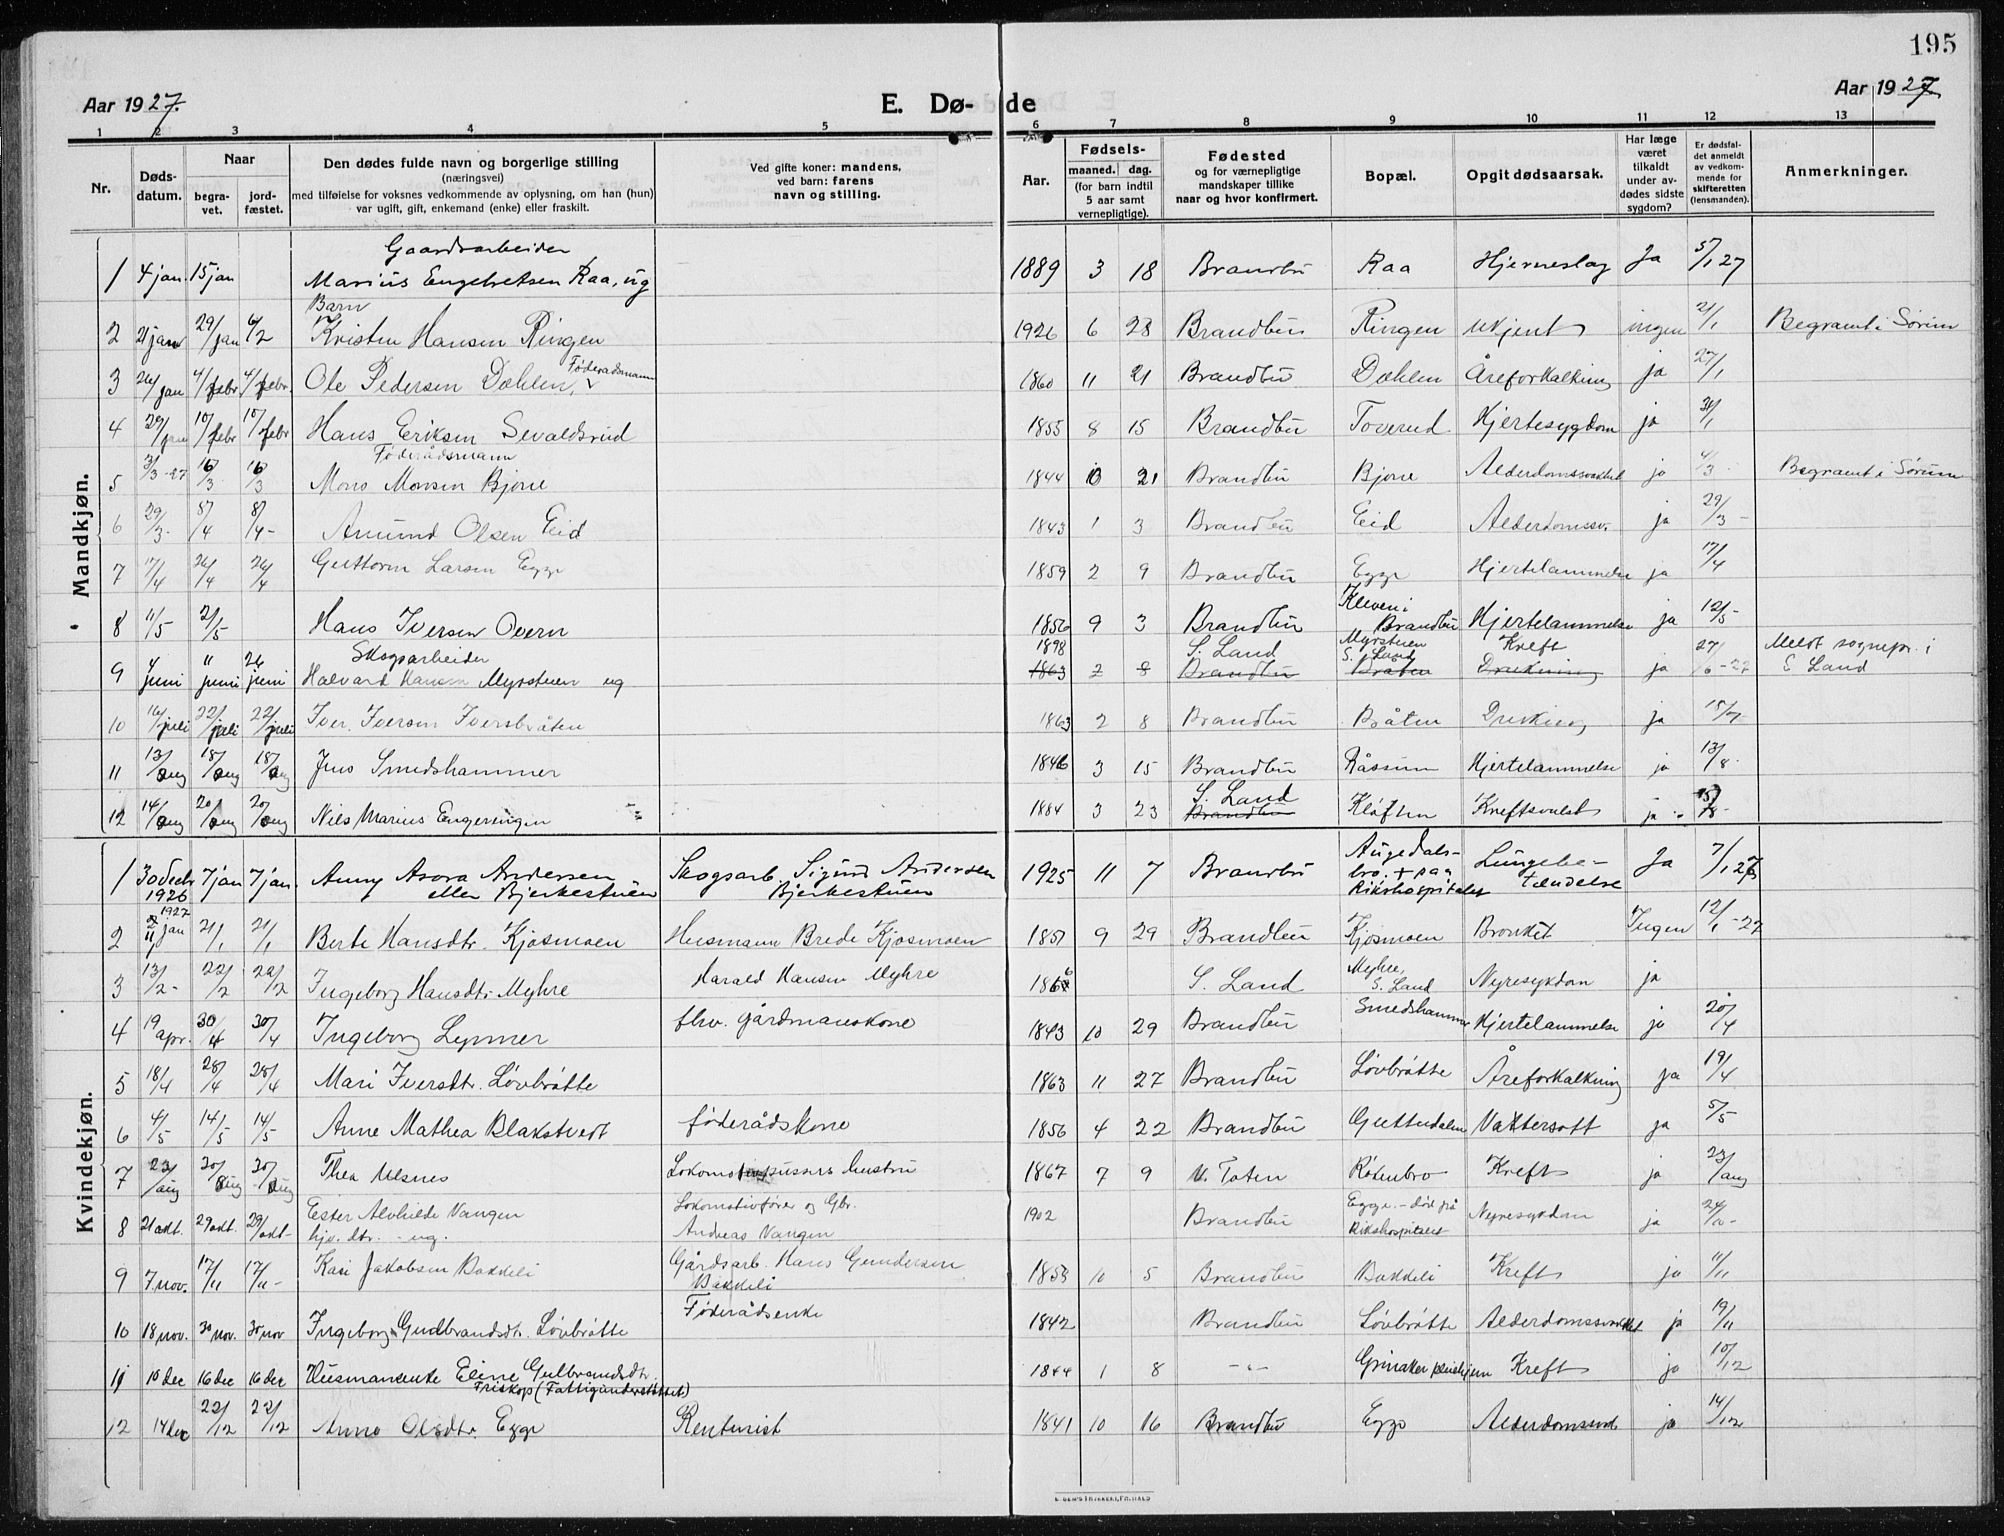 195
Aar 1927. E. Dø- de Aar 1927
1 2 3 4 5 6 7 8 9 10 11 12 13
Nr. Døds-datum. Naar begra-vet. jord-fæstet. Den dødes fulde navn og borgerlige stilling (næringsvei) med tilføielse for voksnes vedkommende av oplysning, om han (hun) var ugift, gift, enkemand (enke) eller fraskilt. Ved gifte koner: mandens, ved barn: farens navn og stilling. Aar. Fødsels- maaned. dag. (for barn indtil 5 aar samt vernepligtige). Fødested og for værnepligtige mandskaper tillike naar og hvor konfirmert. Bopæl. Opgit dødsaarsak. Har læge været tilkaldt under av-dødes sidste sygdom? Er dødsfal-det anmeldt av vedkom-mende for skifteretten (lensmanden). Anmerkninger.
Mandkjøn.
Gaardsarbeider
1 4 jan. 15 jan Marius Engebretsen Raa, ug 1889 3 18 Brandbu Raa Hjerneslag Ja 5/1 27
Barn
2 21 jan 29/jan 6/2 Kristen Hansen Ringen 1926 6 28 Brandbu Ringen Ukjent ingen 21/1 Begravet i Sørum
3 26/jan 4/febr 4/febr. Ole Pedersen Dæhlen, Føderadsmann 1860 11 21 Brandbu Dæhlen Åreforkalkning ja 27/1
4 29/jan 10/febr 10/febr Hans Eriksen Sevaldsrud 1855 8 15 Brandbu Toverud Hjertesygdom ja 31/1
Føderådsmann
5 3/3-27 16/3 16/3 Mons Monsen Bjone 1844 10 21 Brandbu Bjone Alderdomssvakhet ja 4/3 Begravet i Sørum
6 29/3- 5/4 8/4- Amund Olsen Eid 1843 1 3 Brandbu Eid Alderdomssv. ja 29/3-
7 17/4 26/4 26/4 Guttorm Larsen Egge 1859 2 9 Brandbu Egge Hjertelammelse ja 17/4
8 11/5 21/5 Hans Iversen Overn 1856 9 3 Brandbu Kleven i Brandbu Hjertelammelse ja 12/5-
Skogsarbeider 1898 S. Land Myrstuen S. Land Kreft
9 4 juni 11 juni 26 juni Halvard Hansen Myrstuen ug 1863 2 8 Brandbu Bråten Drukning ja 27/6-27 Meldt sognepr. i S Land
10 16/juli 22/juli 22/juli Iver Iversen Iversbråten 1863 2 8 Brandbu Bråten Drukning ja 15/7-
11 13/aug 18/aug 18/aug Jens Smedshammer 1846 3 15 Brandbu Råssum Hjertelammelse ja 13/8-
12 14/aug 20/aug 20/aug Nils Marius Engeringen 1884 3 23 S. Land Brandbu Kløften Kreftsvulst ja 15/8-
Kvindekjøn.
1 30 Decbr 1926 7 jan 7 jan. Anny Asora Andersen eller Bjerkestuen Skogsarb. Sigurd Andersen Bjerkestuen 1925 11 7 Brandbu Augedals-bro. + paa Rikshospitalet Lungebe-tændelse Ja 7/1 27
2 1927 11 jan 21/1 21/1 Berte Hansdtr. Kjosmoen Husmann Brede Kjosmoen 1851 9 29 Brandbu Kjosmoen Bronkit Ingen 12/1-27
3 13/2- 22/2 22/2 Ingeborg Hansdtr Myhre Harald Hansen Myhre 186 S. Land Myhre, S. Land Nyresykdom ja
4 19 apr. 30/4 30/4 Ingeborg Lynner fhv. gårdmanskone 1843 10 29 Brandbu Smedshammer Hjertelammelse ja 20/4
5 18/4 28/4 28/4 Mari Iversdtr. Løvbråtte 1863 11 27 Brandbu Løvbråtte Åreforkalkning ja 19/4
6 4/5 14/5 14/5 Anne Mathea Blakstvedt føderådskone 1856 4 22 Brandbu Guttudalen Vattersott ja 5/5
7 23/aug 30/aug 30/aug Thea Ulsnes Lokomotivpussers hustru 1867 7 9 V. Toten Røkenbro Kreft ja 23/aug
8 21 okt. 29 okt. 29/okt- Ester Alvhilde Vangen hjv. dtr. - ug. Lokomotivfører og Gbr. Andreas Vangen 1902 Brandbu Egge. - død på Rikshospitalet Nyresykdom ja 24/10-
9 7 nov. 17/11 17/11- Kari Jakobsen Bakkeli Gårdsarb. Hans Gundersen Bakkeli 1853 10 5 Brandbu Bakkeli Kreft ja 11/11
10 18 nov. 30 nov. 30 nov Ingeborg Gudbrandsdtr. Løvbråtte Føderådsenke 1842 Brandbu Løvbråtte Alderdomssvakhet ja 19/11
11 10 dec 16 dec 16 dec Husmannenke Eline Gulbrandsdtr. Friskop (Fattigunderstøttet) 1844 1 8 -"- Grinaker pleiehjem Kreft ja 10/12
12 14 dec 22/12 22/12 Anne Olsdtr. Egge Renturist 1841 10 16 Brandbu Egge Alderdomssvak ja 14/12